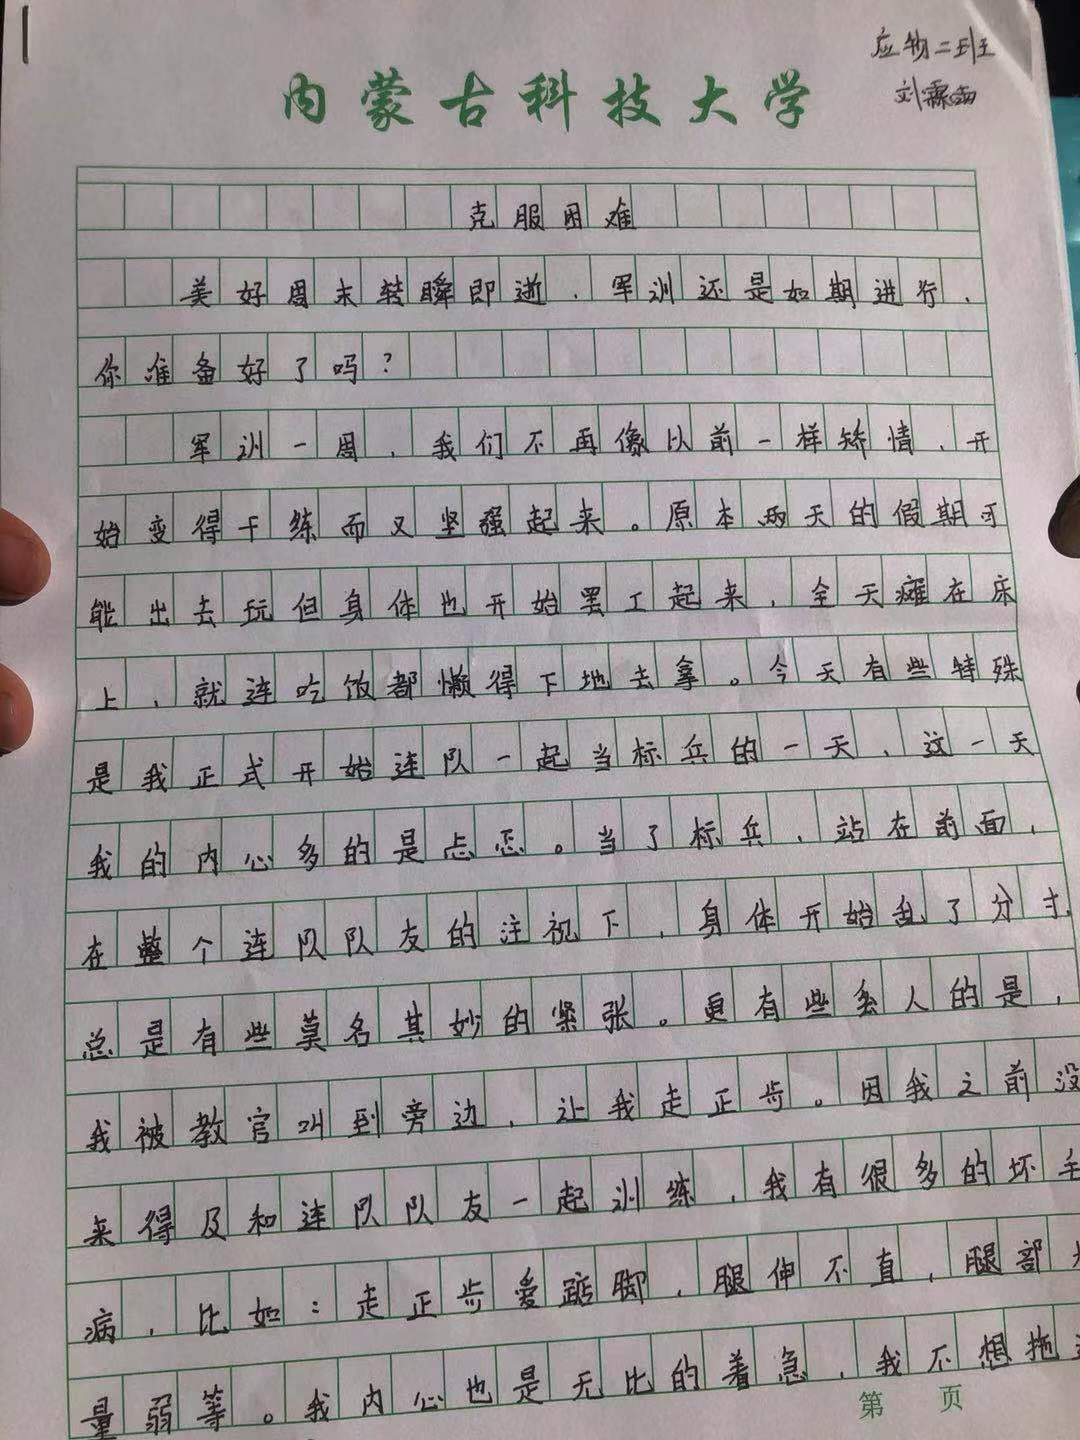 应物二班
刘霖雨
内蒙古科技大学
克服困难
美好周末转瞬即逝，军训还是如期进行，
你准备好了吗？
军训一周，我们不再像以前一样矫情，开
始变得干练而又坚强起来。原本两天的假期可
能出去玩但身体也开始罢工起来，全天瘫在床
上，就连吃饭都懒得下地去拿。今天有些特殊
是我正式开始连队一起当标兵的一天，这一天
我的内心多的是忐忑。当了标兵，站在前面，
在整个连队队友的注视下，身体开始乱了分寸，
总是有些莫名其妙的紧张。更有些丢人的是，
我被教官叫到旁边，让我走正步。因我之前没
来得及和连队队友一起训练，我有很多的坏毛
病，比如：走正步爱踮脚，腿伸不直，腿部力
量弱等。我内心也是无比的着急，我不想拖
第 页